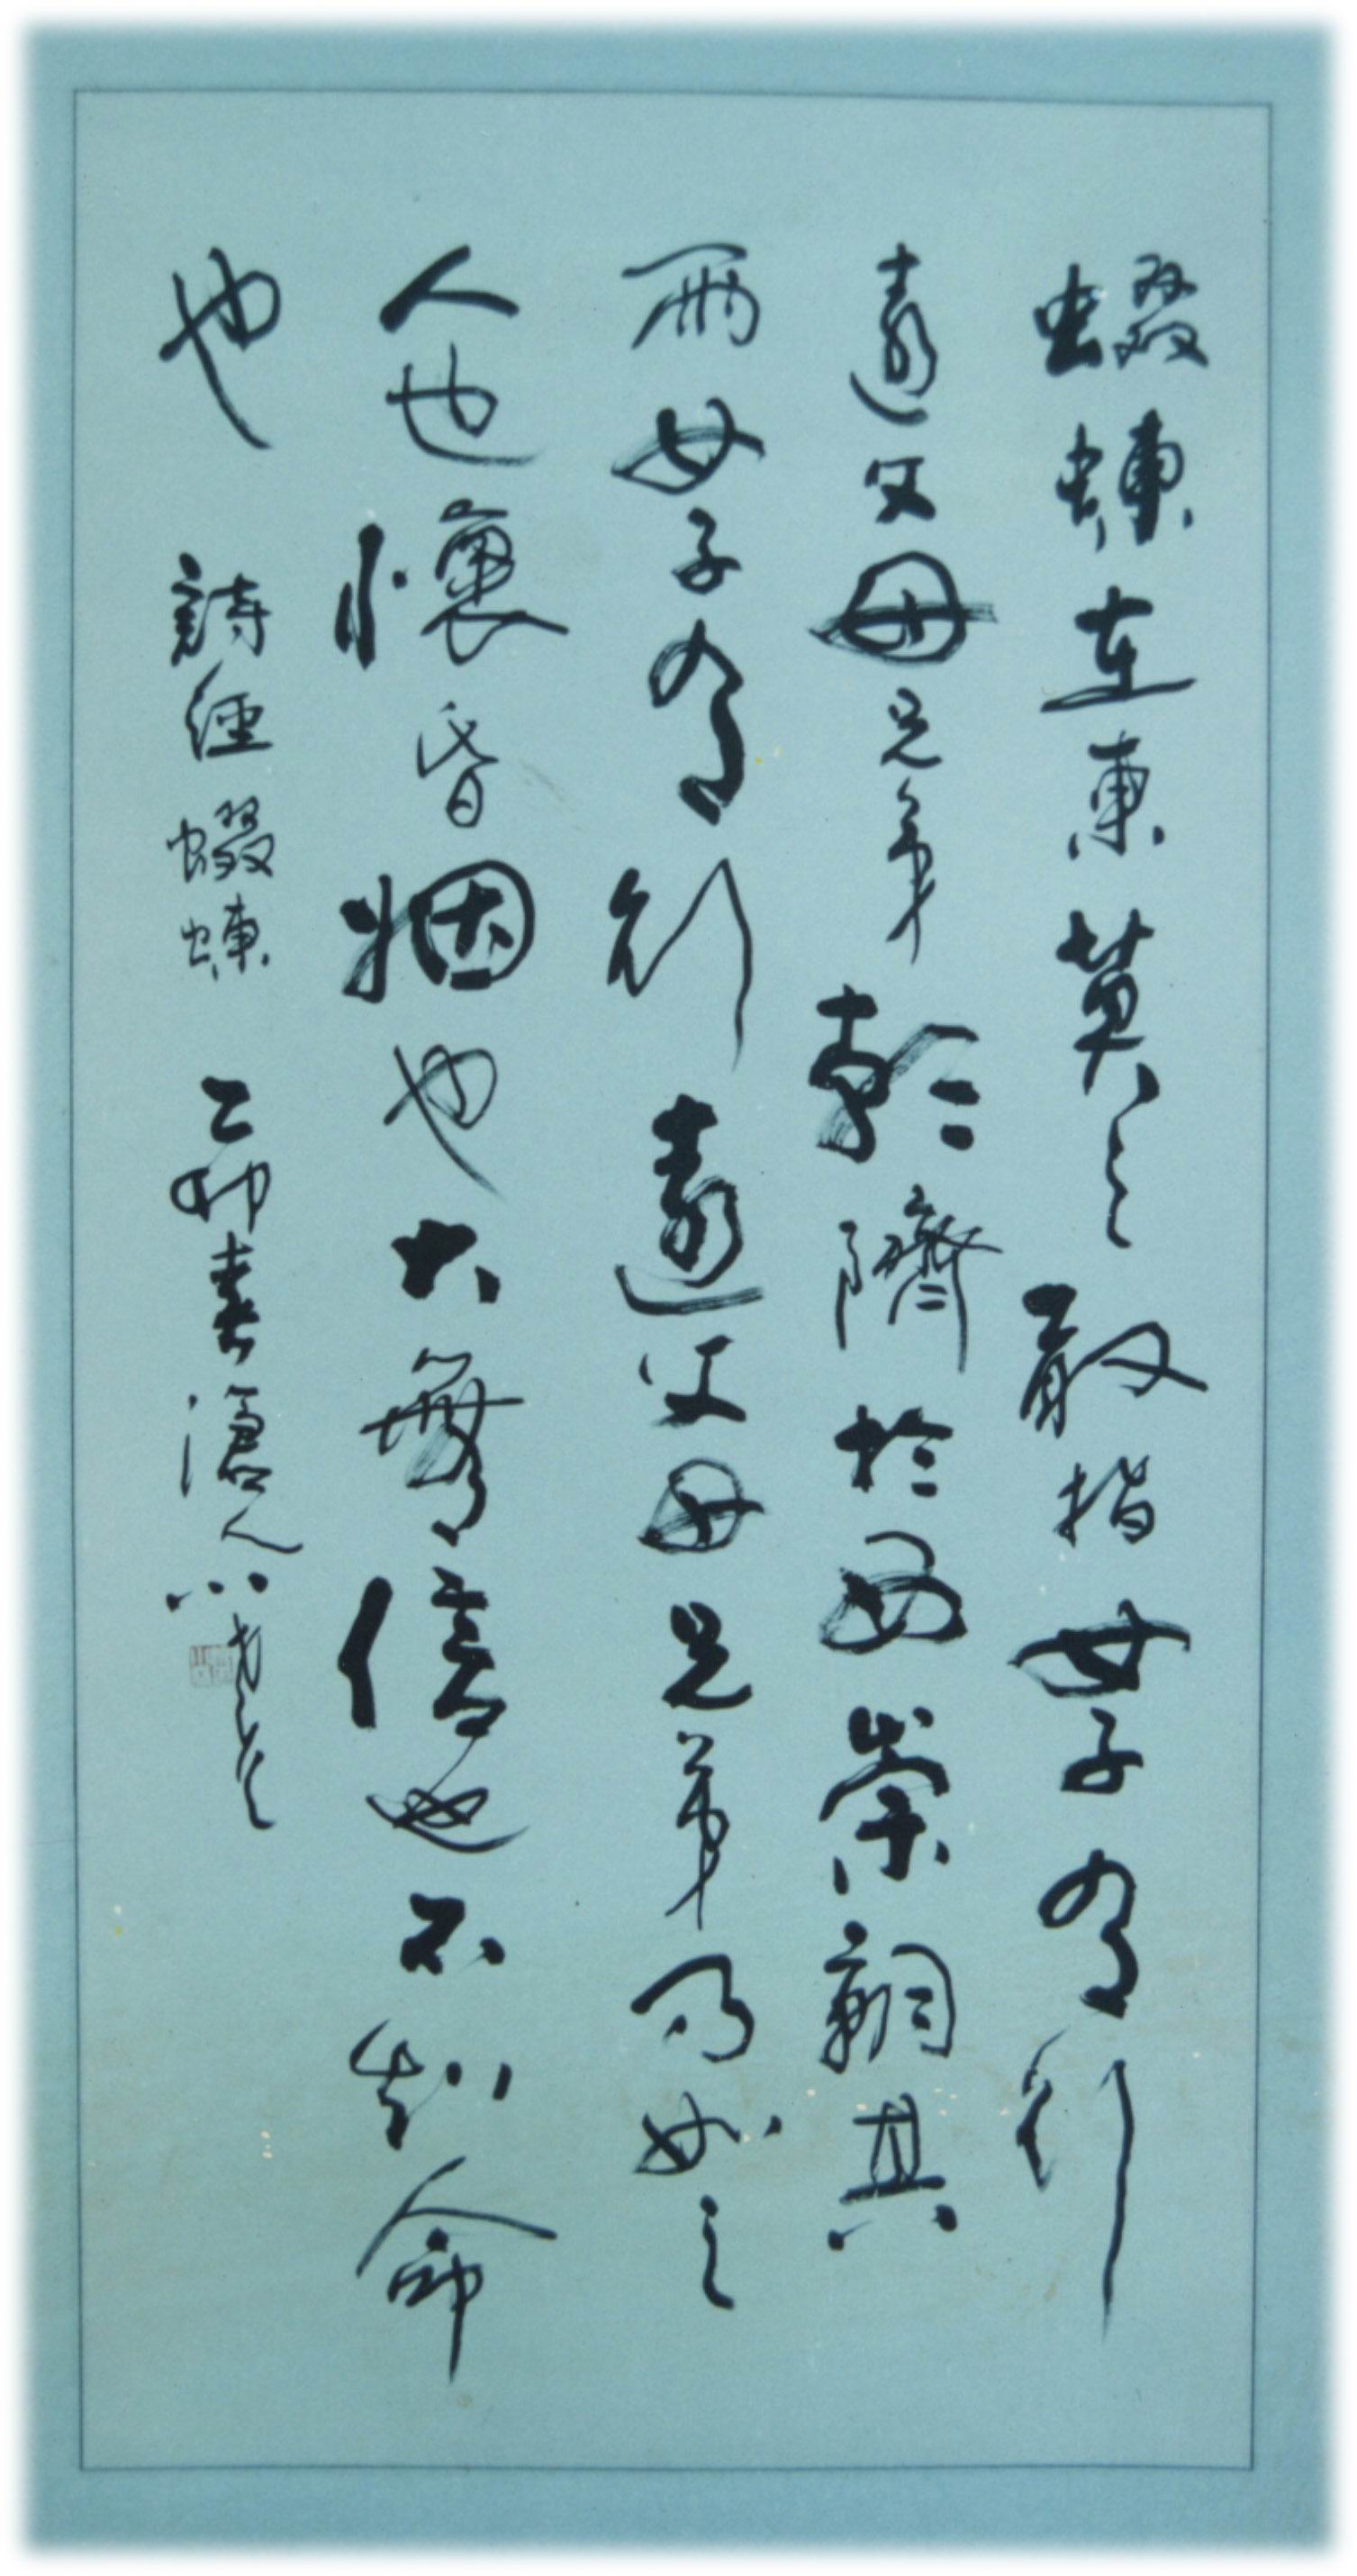 蝃蝀在東莫之敢指女子有行
遠父母兄弟朝隮於西崇朝其
雨女子有行遠父母兄弟乃如之
人也懷昏姻也大無信也不知命
也 詩經蝃蝀 乙卯春滄人